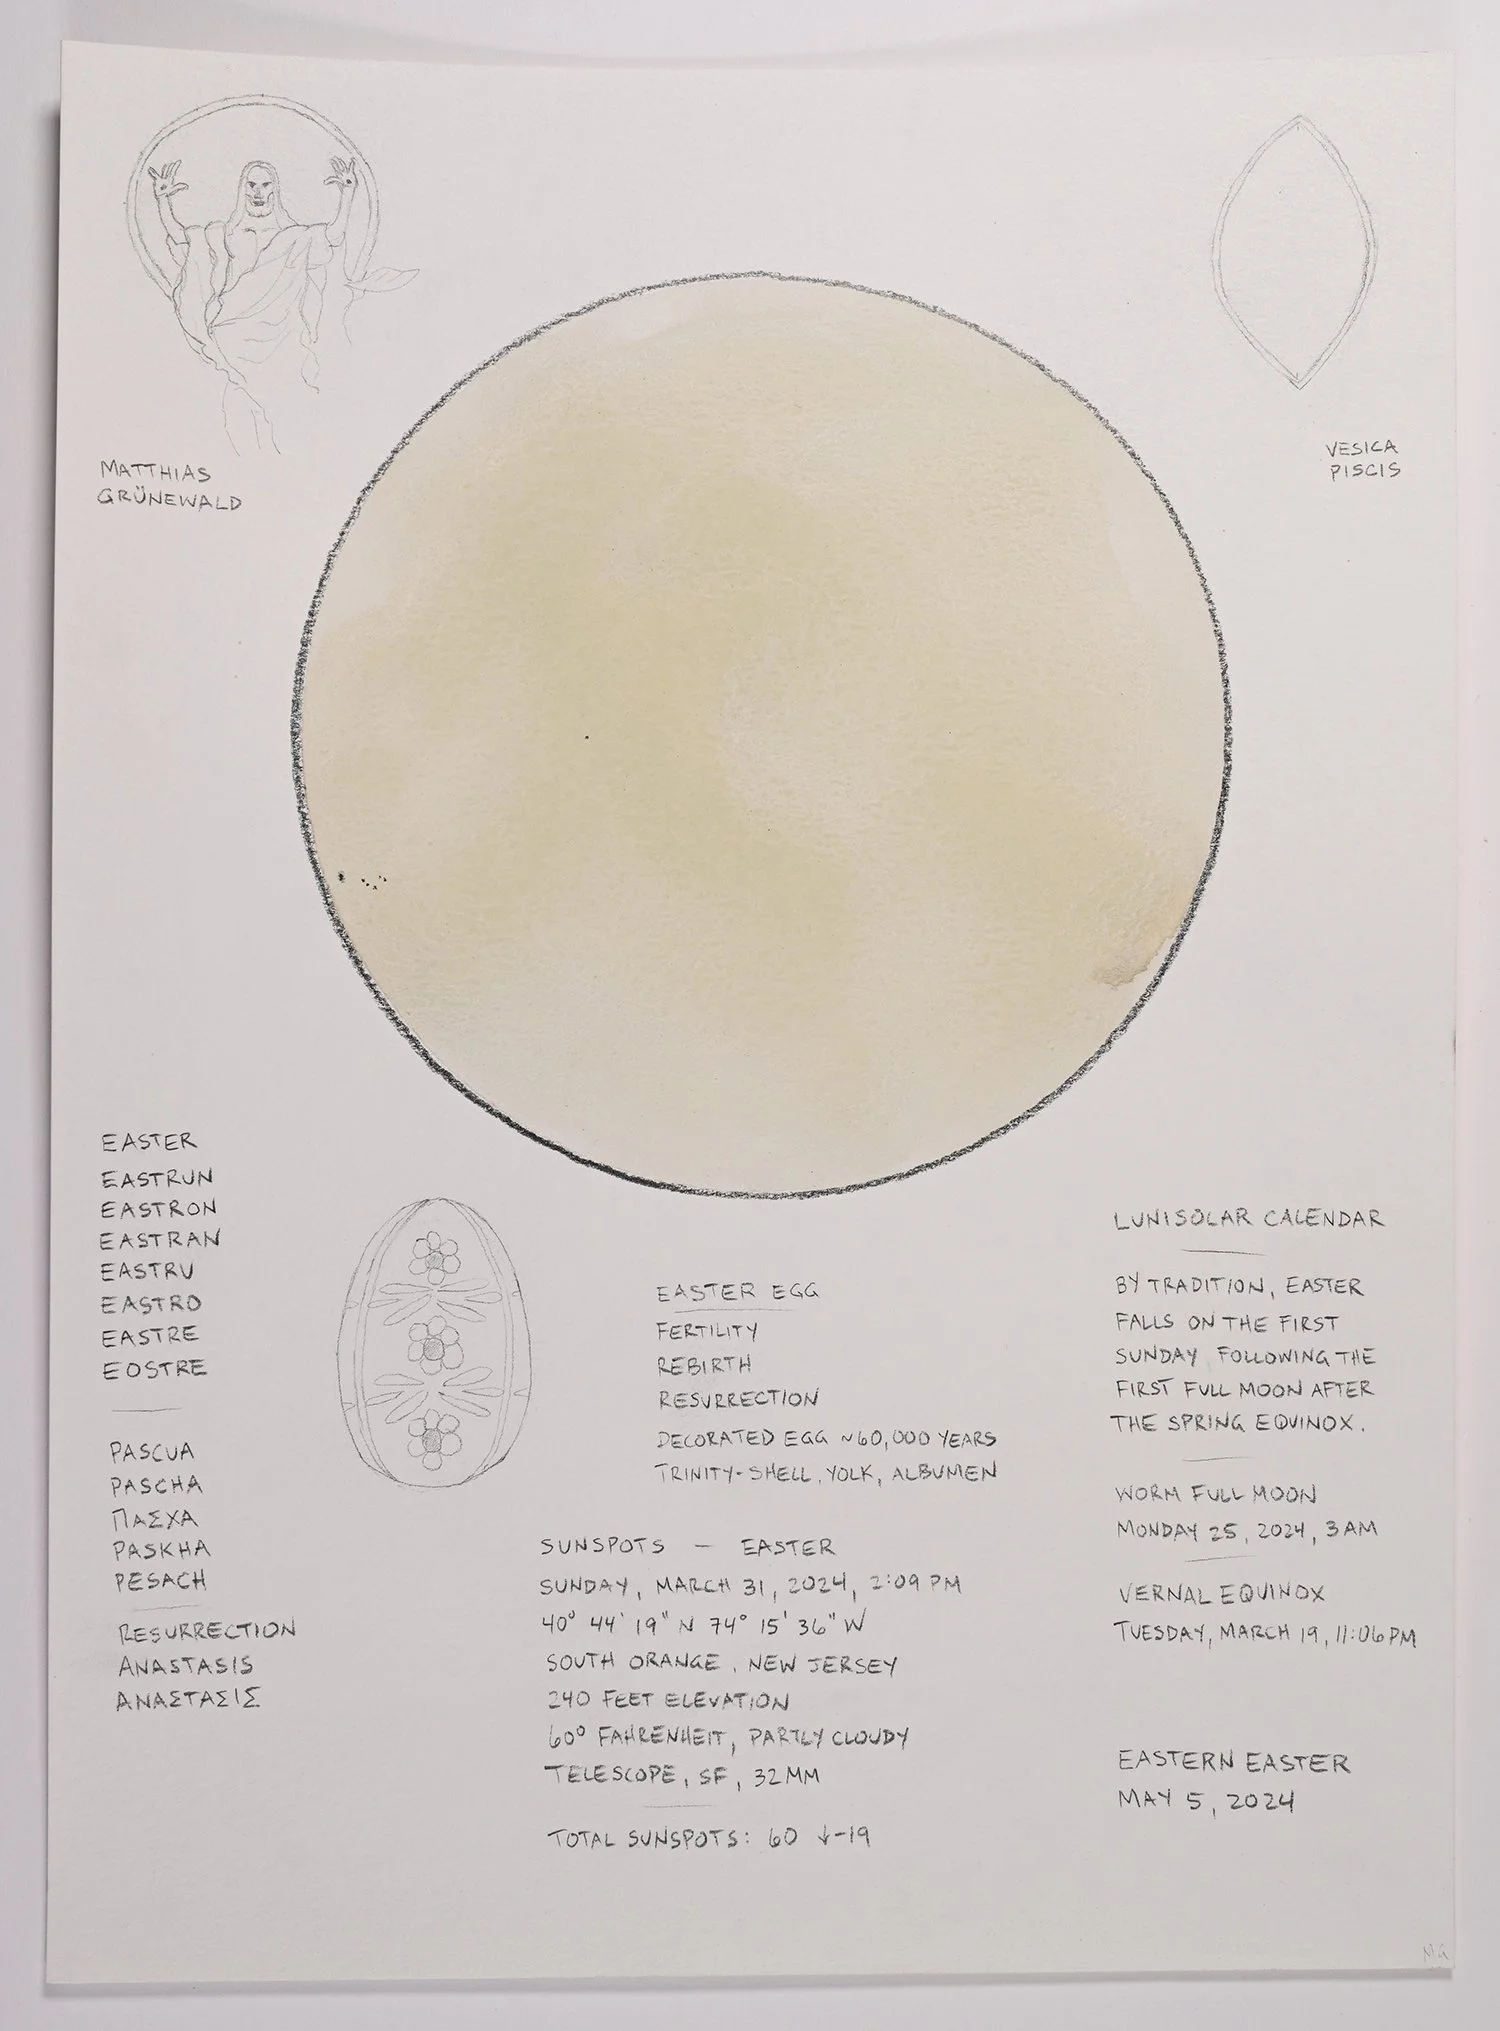 MATTHIAS
GRÜNEWALD
VESICA
PISCIS
EASTER
EASTRUN
EASTRON
EASTRAN
EASTRU
EASTRO
EASTRE
EOSTRE
PASCUA
PASCHA
ΠΑΣΧΑ
PASKHA
PESACH
RESURRECTION
ANASTASIS
ΑΝΑΣΤΑΣΙΣ
EASTER EGG
FERTILITY
REBIRTH
RESURRECTION
DECORATED EGG ~60,000 YEARS
TRINITY-SHELL, YOLK, ALBUMEN
SUNSPOTS — EASTER
SUNDAY, MARCH 31, 2024, 2:09 PM
40° 44' 19" N 74° 15' 36" W
SOUTH ORANGE, NEW JERSEY
240 FEET ELEVATION
60° FAHRENHEIT, PARTLY CLOUDY
TELESCOPE, SF, 32MM
TOTAL SUNSPOTS: 60 ↓-19
LUNISOLAR CALENDAR
BY TRADITION, EASTER
FALLS ON THE FIRST
SUNDAY FOLLOWING THE
FIRST FULL MOON AFTER
THE SPRING EQUINOX.
WORM FULL MOON
MONDAY 25, 2024, 3AM
VERNAL EQUINOX
TUESDAY, MARCH 19, 11:06PM
EASTERN EASTER
MAY 5, 2024
MG